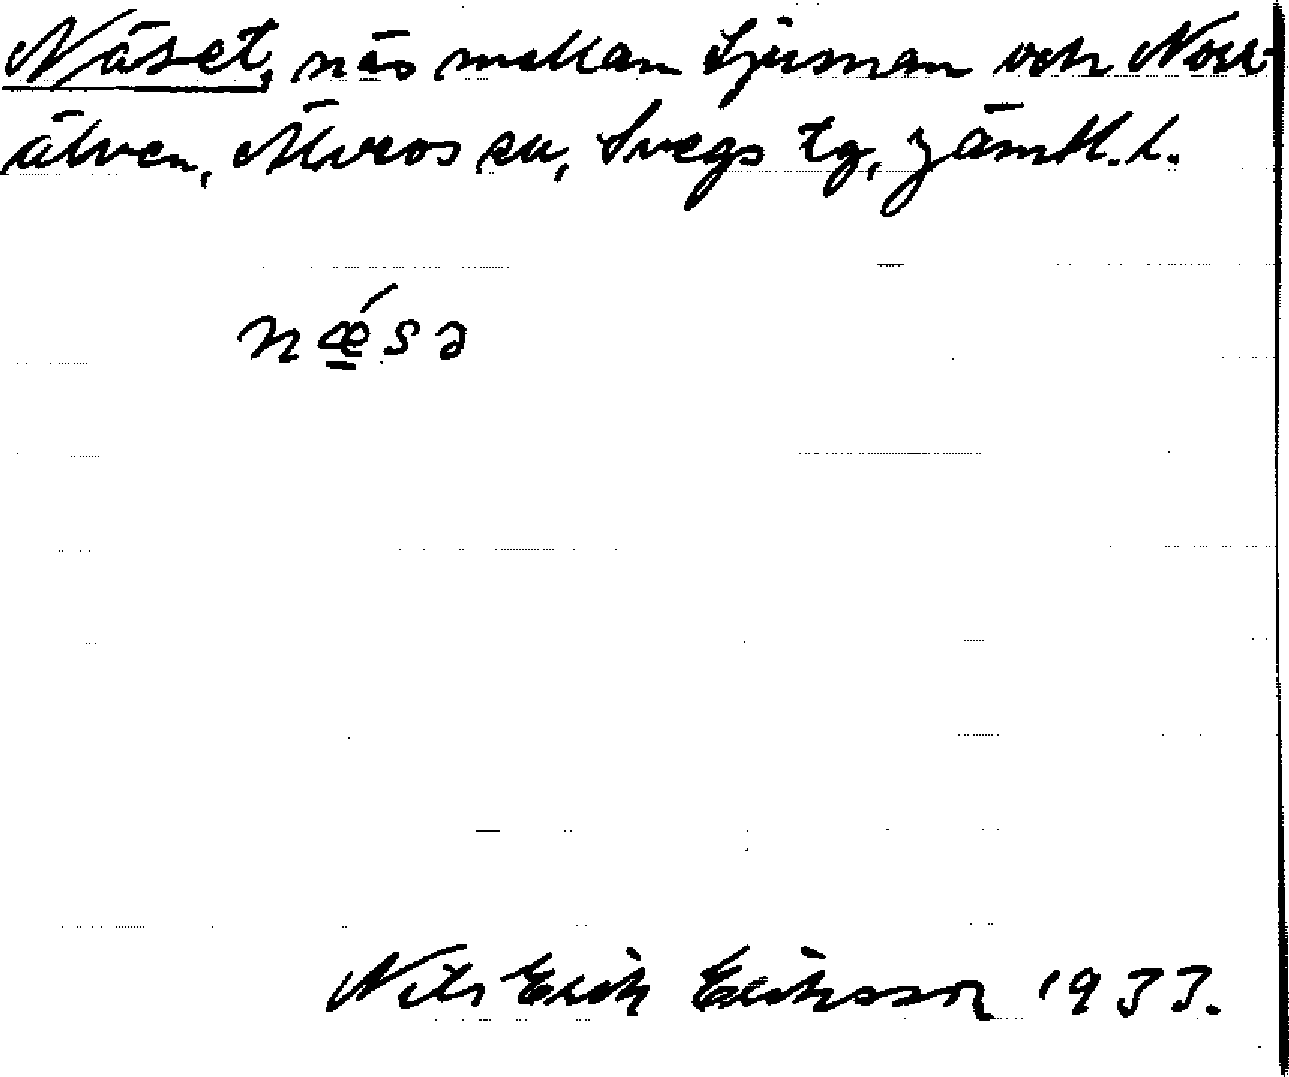 Näset, näs mellan Ljusnan och Norr-
älven, Älvros sn, Svegs tg, Jämtl. l.
nǽ̲sə
Nils Erik Eriksson 1933.